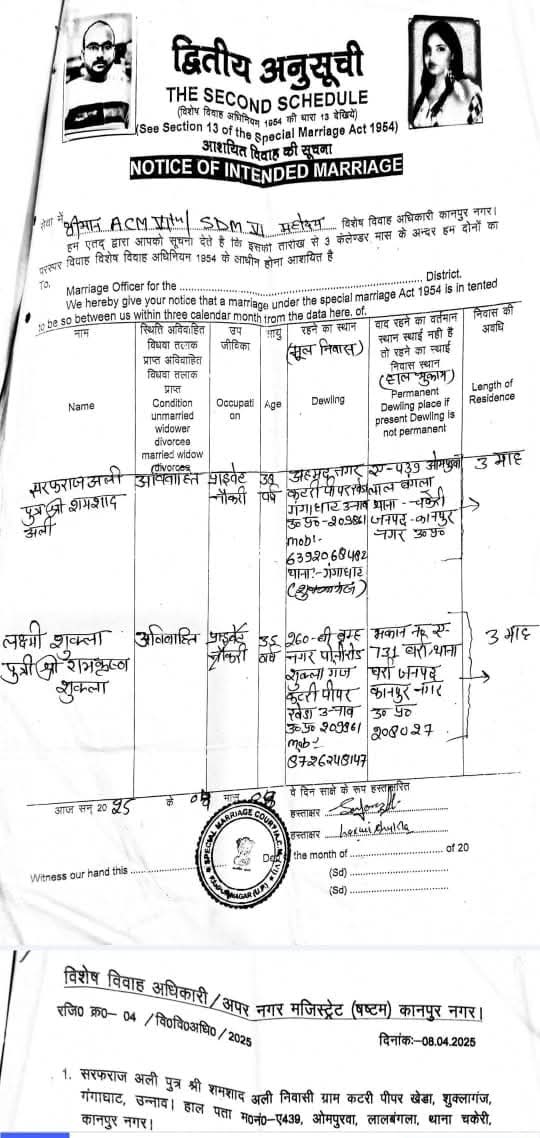 द्वितीय अनुसूची
THE SECOND SCHEDULE
(विशेष विवाह अधिनियम 1954 की धारा 13 देखिये)
(See Section 13 of the Special Marriage Act 1954)
आशयित विवाह की सूचना
NOTICE OF INTENDED MARRIAGE
सेवा में श्रीमान ACM VIth/ SDM VI महोदय विशेष विवाह अधिकारी कानपुर नगर।
हम एतद् द्वारा आपको सूचना देते है कि इसकी तारीख से 3 कैलेण्डर मास के अन्दर हम दोनों का
परस्पर विवाह विशेष विवाह अधिनियम 1954 के आधीन होना आशयित है
To, Marriage Officer for the District.
We hereby give your notice that a marriage under the special Marriage Act 1954 is in tented
to be so between us within three calendar month from the data here. of.
नाम
Name
स्थिति अविवाहित
विधवा तलाक
प्राप्त अविवाहित
विधवा तलाक
प्राप्त
Condition
unmarried
widower
divorces
married widow
(divorces
उप
जीविका
Occupati
on
आयु
Age
रहने का स्थान
(मूल निवास)
Dewling
याद रहने का वर्तमान
स्थान स्थाई नही है
तो रहने का स्थाई
निवास स्थान
(हाल मुकाम)
Permanent
Dewling place if
present Dewling is
not permanent
निवास की
अवधि
Length of
Residence
सरफराज अली
पुत्र श्री शमशाद
अली
अविवाहित
प्राइवेट
नौकरी
वर्ष
अहमद नगर
कटरी पीपर खेड़ा
गंगाघाट उन्नाव
उ०प्र०-209861
mob:-
6392068482
थाना:-गंगाघाट
(शुक्लागंज)
ए-439 ओमपुरवा
लाल बंगला
थाना - चकेरी
जनपद-कानपुर
नगर उ०प्र०
3 माह
लक्ष्मी शुक्ला
पुत्री श्री रामकृष्ण
शुक्ला
अविवाहित
प्राइवेट
नौकरी
35
वर्ष
260-बी ब्रम्ह
नगर पोनीरोड
शुक्ला गंज
कटरी पीपर
खेड़ा उन्नाव
उ०प्र० 209861
mob:-
8726248147
मकान नं० ए-
731 बर्रा थाना
बर्रा जनपद
कानपुर नगर
उ० प्र०
208027
3 माह
आज सन् 2025 के 08 मास 04 वे दिन साक्षे के रूप हस्तारित
हस्ताक्षर
हस्ताक्षर
Witness our hand this Day the month of of 20
(Sd)
(Sd)
SPECIAL MARRIAGE COURT/A.C.M.(VI)
KANPUR NAGAR (U.P.)
विशेष विवाह अधिकारी/अपर नगर मजिस्ट्रेट (षष्टम) कानपुर नगर।
रजि0 क्र0- 04 /वि0वि0अधि0/2025 दिनांक:-08.04.2025
1. सरफराज अली पुत्र श्री शमशाद अली निवासी ग्राम कटरी पीपर खेडा, शुक्लागंज,
गंगाघाट, उन्नाव। हाल पता म0नं0-ए439, ओमपुरवा, लालबंगला, थाना चकेरी,
कानपुर नगर।